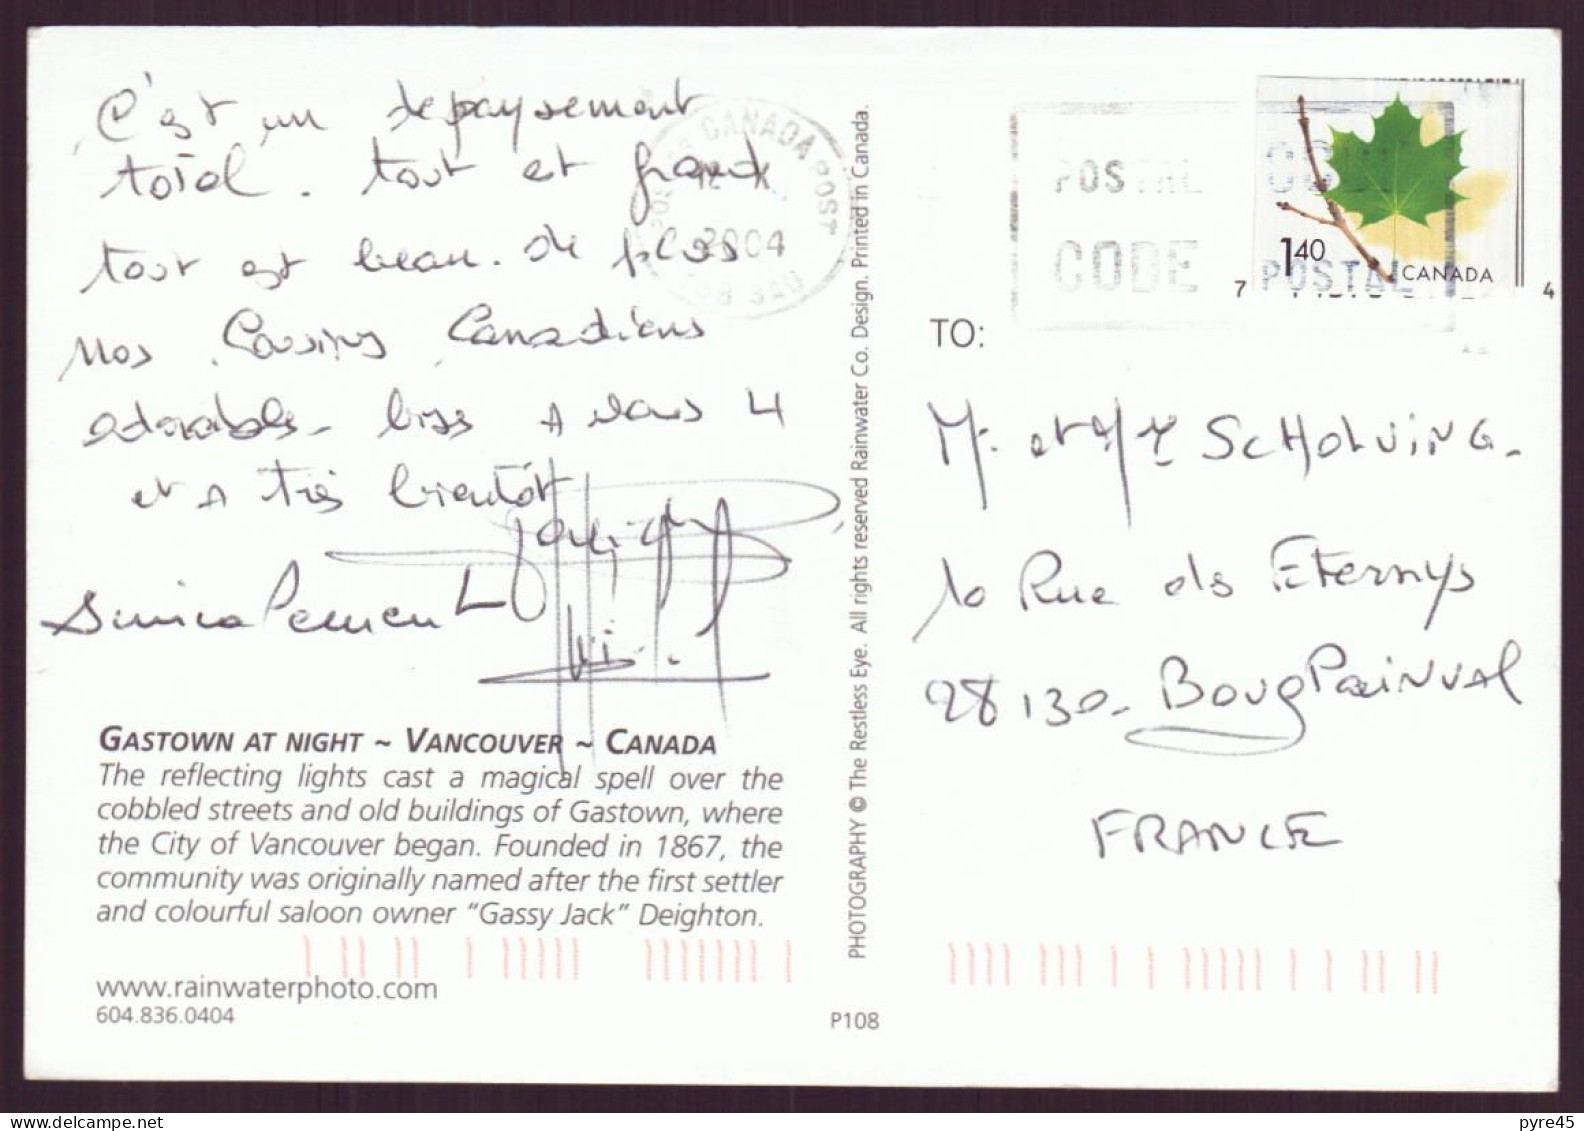 C'est un depaysement
total. tout est grand
tout est beau. de plus
nos Cousins Canadiens
adorables. bises A vous 4
et A très bientôt
Amicalement
GASTOWN AT NIGHT ~ VANCOUVER ~ CANADA
The reflecting lights cast a magical spell over the
cobbled streets and old buildings of Gastown, where
the City of Vancouver began. Founded in 1867, the
community was originally named after the first settler
and colourful saloon owner "Gassy Jack" Deighton.
www.rainwaterphoto.com
604.836.0404
PHOTOGRAPHY © The Restless Eye. All rights reserved Rainwater Co. Design. Printed in Canada.
P108
CANADA POST
2004
POSTAL
CODE
POSTAL
1.40
CANADA
7 4
TO:
Mr et Mme SCHOLVING.
10 Rue des Eternys
28130 - Boug Painval
FRANCE
pyre45